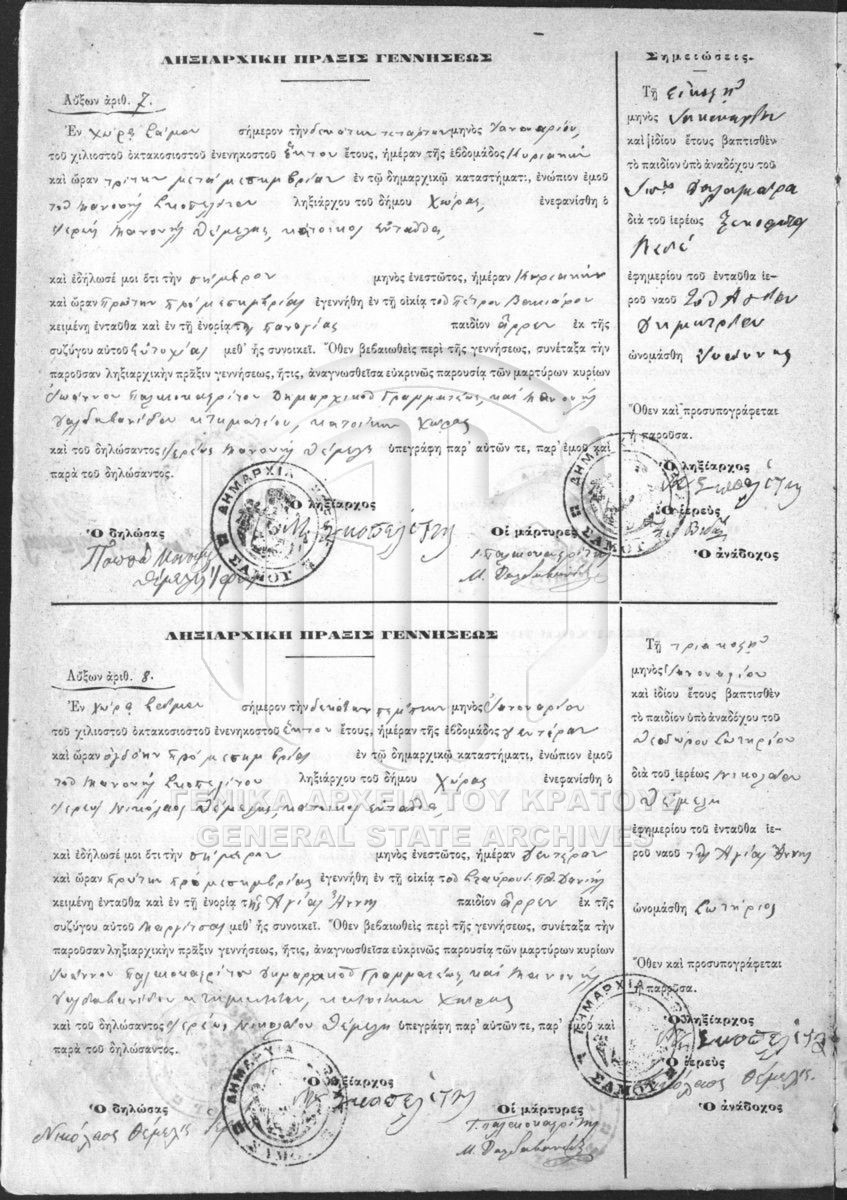 ΛΗΞΙΑΡΧΙΚΗ ΠΡΑΞΙΣ ΓΕΝΝΗΣΕΩΣ
Αὔξων ἀριθ. 7.
Ἐν Χώρᾳ Σάμου σήμερον τὴν δεκάτην τετάρτην μηνὸς Ἰανουαρίου,
τοῦ χιλιοστοῦ ὀκτακοσιοστοῦ ἐνενηκοστοῦ ἕκτου ἔτους, ἡμέραν τῆς ἑβδομάδος Κυριακὴν
καὶ ὥραν τρίτην μεταμεσημβρίαν ἐν τῷ δημαρχικῷ καταστήματι, ἐνώπιον ἐμοῦ
τοῦ Μανουὴλ Σκοπελίτου ληξιάρχου τοῦ δήμου Χώρας, ἐνεφανίσθη ὁ
ἱερεὺς Μανουὴλ Θέμελης, κάτοικος ἐνταῦθα,
καὶ ἐδήλωσέ μοι ὅτι τὴν σήμερον μηνὸς ἐνεστῶτος, ἡμέραν Κυριακὴν
καὶ ὥραν πρώτην πρὸ μεσημβρίας ἐγεννήθη ἐν τῇ οἰκίᾳ τοῦ Πέτρου
κειμένῃ ἐνταῦθα καὶ ἐν τῇ ἐνορίᾳ τῆς Παναγίας παιδίον ἄρρεν ἐκ τῆς
συζύγου αὐτοῦ Εὐτυχίας μεθ' ἧς συνοικεῖ. Ὅθεν βεβαιωθεὶς περὶ τῆς γεννήσεως, συνέταξα τὴν
παροῦσαν ληξιαρχικὴν πρᾶξιν γεννήσεως, ἥτις, ἀναγνωσθεῖσα εὐκρινῶς παρουσίᾳ τῶν μαρτύρων κυρίων
Ἰωάννου Παλαιοκαστρίτου Δημαρχικοῦ Γραμματέως, καὶ Μανουὴλ
κτηματίου, κατοίκων Χώρας
καὶ τοῦ δηλώσαντος ἱερέως Μανουὴλ Θέμελη ὑπεγράφη παρ' αὐτῶν τε, παρ' ἐμοῦ καὶ
παρὰ τοῦ δηλώσαντος.
Ὁ δηλώσας
Ὁ ληξίαρχος
Οἱ μάρτυρες
Παππᾶ Μανουὴλ
Μ. Σκοπελίτης
ΔΗΜΑΡΧΙΑ
ΣΑΜΟΥ
Σημειώσεις.
Τῇ εἰκοστῇ
μηνὸς Ἰανουαρίου
καὶ ἰδίου ἔτους βαπτισθὲν
τὸ παιδίον ὑπὸ ἀναδόχου τοῦ
διὰ τοῦ ἱερέως
ἐφημερίου τοῦ ἐνταῦθα ἱε-
ροῦ ναοῦ τοῦ Ἁγίου
Δημητρίου
ὠνομάσθη Ἰωάννης
Ὅθεν καὶ προσυπογράφεται
ἡ παροῦσα.
Ὁ ληξίαρχος
Μ. Σκοπελίτης
Ὁ ἱερεὺς
Ὁ ἀνάδοχος
ΔΗΜΑΡΧΙΑ
ΣΑΜΟΥ
ΛΗΞΙΑΡΧΙΚΗ ΠΡΑΞΙΣ ΓΕΝΝΗΣΕΩΣ
Αὔξων ἀριθ. 8.
Ἐν Χώρᾳ Σάμου σήμερον τὴν δεκάτην πέμπτην μηνὸς Ἰανουαρίου
τοῦ χιλιοστοῦ ὀκτακοσιοστοῦ ἐνενηκοστοῦ ἕκτου ἔτους, ἡμέραν τῆς ἑβδομάδος Δευτέραν
καὶ ὥραν ὀγδόην πρὸ μεσημβρίας ἐν τῷ δημαρχικῷ καταστήματι, ἐνώπιον ἐμοῦ
τοῦ Μανουὴλ Σκοπελίτου ληξιάρχου τοῦ δήμου Χώρας ἐνεφανίσθη ὁ
ἱερεὺς Νικόλαος Θέμελης, κάτοικος ἐνταῦθα,
ΓΕΝΙΚΑ ΑΡΧΕΙΑ ΤΟΥ ΚΡΑΤΟΥΣ
GENERAL STATE ARCHIVES
καὶ ἐδήλωσέ μοι ὅτι τὴν σήμερον μηνὸς ἐνεστῶτος, ἡμέραν Δευτέραν
καὶ ὥραν πρώτην πρὸ μεσημβρίας ἐγεννήθη ἐν τῇ οἰκίᾳ τοῦ
κειμένῃ ἐνταῦθα καὶ ἐν τῇ ἐνορίᾳ τῆς Ἁγίας Ἄννης παιδίον ἄρρεν ἐκ τῆς
συζύγου αὐτοῦ Μαργίτσας μεθ' ἧς συνοικεῖ. Ὅθεν βεβαιωθεὶς περὶ τῆς γεννήσεως, συνέταξα τὴν
παροῦσαν ληξιαρχικὴν πρᾶξιν γεννήσεως, ἥτις, ἀναγνωσθεῖσα εὐκρινῶς παρουσίᾳ τῶν μαρτύρων κυρίων
Ἰωάννου Παλαιοκαστρίτου Δημαρχικοῦ Γραμματέως, καὶ Μανουὴλ
κτηματίου, κατοίκων Χώρας
καὶ τοῦ δηλώσαντος ἱερέως Νικολάου Θέμελη ὑπεγράφη παρ' αὐτῶν τε, παρ' ἐμοῦ καὶ
παρὰ τοῦ δηλώσαντος.
Ὁ δηλώσας
Ὁ ληξίαρχος
Οἱ μάρτυρες
Νικόλαος Θέμελης
Μ. Σκοπελίτης
ΔΗΜΑΡΧΙΑ
ΣΑΜΟΥ
Τῇ τριακοστῇ
μηνὸς Ἰανουαρίου
καὶ ἰδίου ἔτους βαπτισθὲν
τὸ παιδίον ὑπὸ ἀναδόχου τοῦ
Θεοδώρου Σωτηρίου
διὰ τοῦ ἱερέως Νικολάου
Θέμελη
ἐφημερίου τοῦ ἐνταῦθα ἱε-
ροῦ ναοῦ τῆς Ἁγίας Ἄννης
ὠνομάσθη Σωτήριος
Ὅθεν καὶ προσυπογράφεται
ἡ παροῦσα.
Ὁ ληξίαρχος
Μ. Σκοπελίτης
Ὁ ἱερεὺς
Νικόλαος Θέμελης
Ὁ ἀνάδοχος
ΔΗΜΑΡΧΙΑ
ΣΑΜΟΥ